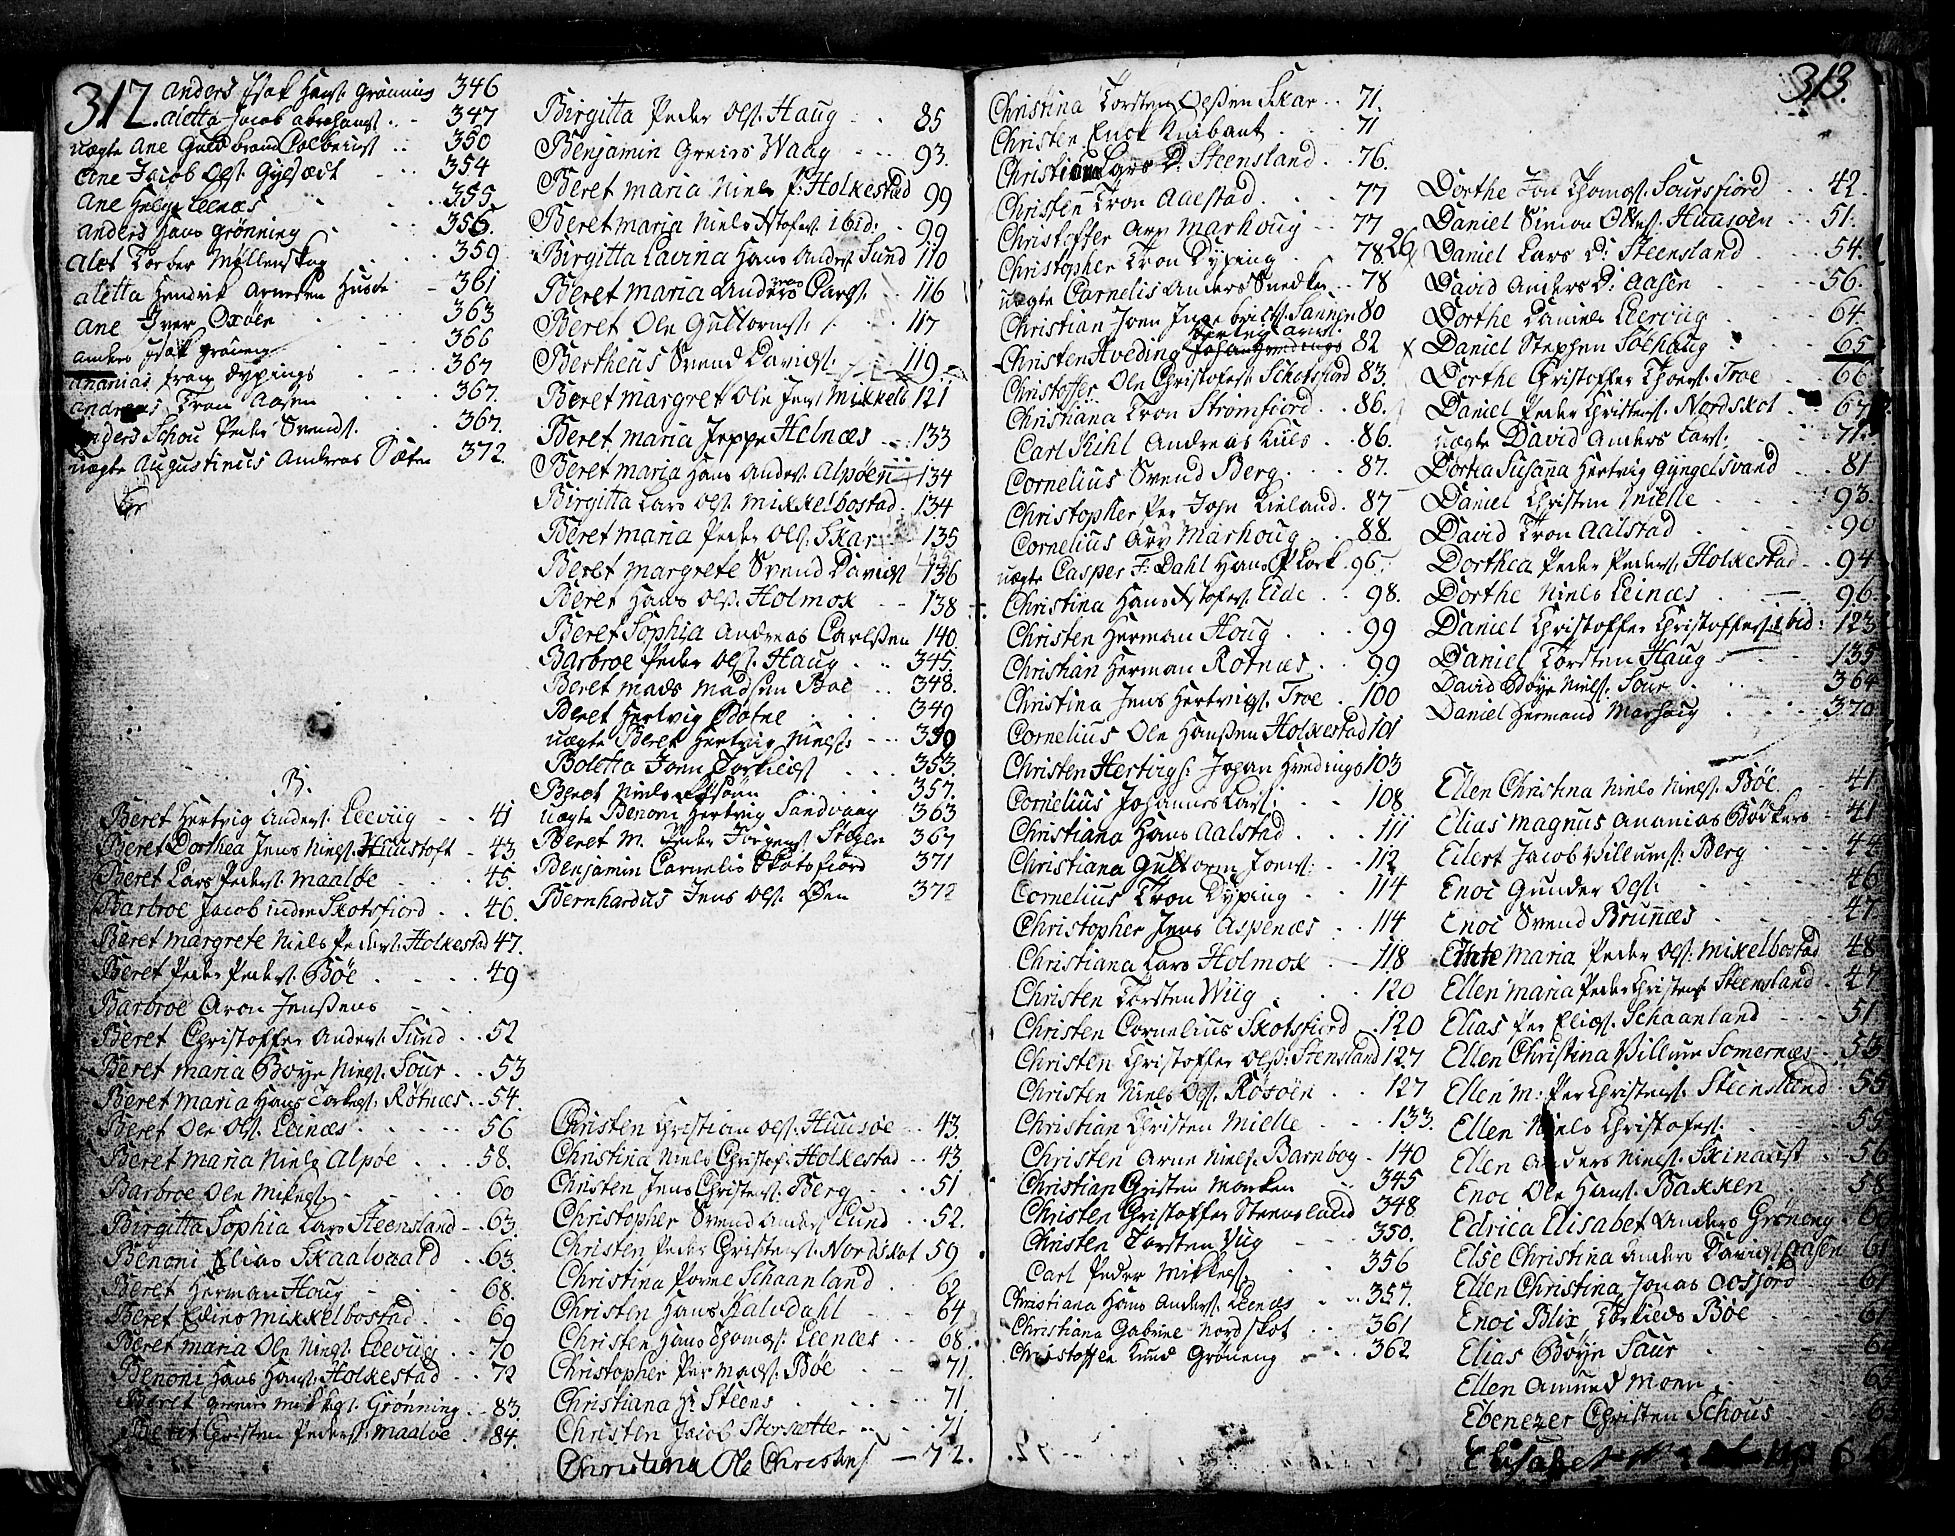 312.
Anders Isak Hans. Grønning 346
Aletta Jacob Abrahams. 347
uægte Ane Guldbrand 350
Ane Jacob Ols. 354
Ane Helge Leenæs 355
Anders Hans Grønning 356
Alet Torber 359
Aletta Hendrik Arnesen Husbye 361
Ane Iver Oxøen 363
Anders Isak Grøneng 366
Ananias Tron Dypings 367
Andreas Tron Aasen 367.
Anders Schou Peder Svends. 367.
uægte Augustinus Andreas Sæter 372.
B.
Beret Hertvig Anders. Leevig 41
Beret Dorthea Jens Niels. 43
Beret Lars Peders. Maaløe 45.
Barbroe Jacob indre Skotsfiord 46.
Beret Margrete Niels Peders. Holkestad 47.
Beret Peder Peders. Bøe 49
Barbroe Aron Jenssens
Beret Christoffer Anders. Sund 52
Beret Maria Bøye Niels. Sour 53
Beret Maria Hans Torkels. Røtnæs 54.
Beret Ole Ols. Leinæs 56
Beret Maria Niels Alpøe 58.
Barbroe Ole Mikels. 60
Birgitta Sophia Lars Steensland 63.
Benoni Elias Skaalvaald 63.
Beret Herman Houg 68.
Beret Elias Mikkelbostad 69
Beret Maria Ole Niels. Leevig 70
Benoni Hans Hans. Holkestad 72
Beret Greiers Mikkels. Grønning 83.
Berit Christen Peders. Maaløe 84.
Birgitta Peder Ols. Haug 85
Benjamin Greiers Waag 93.
Beret Maria Niels P. Holkestad 99
Beret Maria Niels Xstofers. ibid: 99
Birgitta Lavina Hans Anders. Sund 110
Beret Maria Anders Lars. 116
Beret Ole Guttorms. 117
Bertheus Svend Davids. 119
Beret Margret Ole Jens. Mikkelb 121
Beret Maria Jeppe Helnæs 133
Beret Maria Hans Anders. Alpøen 134
Birgitta Lars Ols. Mikkelbostad 134
Beret Maria Peder Ols. Skar 135
Beret Margrete Svend Davids. 136
Beret Hans Ols. Holmok 138
Beret Sophia Andreas Carlssen 140
Barbroe Peder Ols. Haug 345.
Beret Mads Madsen Bøe 348.
Beret Hertvig Botne 349
uægte Beret Hertvig Niels. 350
Boletta Joen Torkields. 353.
Beret Niels 357.
uægte Benoni Hertvig Sandvaag 363
Beret M. Peder Jørgens. Stegen 367
Benjamin Cornelis Skotsfiord 371
Bernhardus Jens Ols. Øen 372
Christen Christian Ols. Huusøe 43.
Christina Niels Christof. Holkestad 43
Christen Jens Christens. Berg 51
Christopher Svend Anders. Lund 52.
Christen Peder Christens. Nordskot 59
Christina Schaanland 62
Christen Hans Kalvdahl 64
Christen Hans Thomas. Leenæs 68.
Christopher Per Mads. Bøe 71.
Christiana H. Steens 71
Christen Jacob Storsætter 71
Christina Ole Christens. 72.
313.
Christina Torsten Olssen Skar 71.
Christen Enok Knibant 71
Christiana Lars D. Steensland 76.
Christen Tron Aalstad 77
Christoffer Ary Marhoug 77
Christopher Tron Dyping 78
uægte Cornelis Anders Snedker 78
Christian Joen Ingebrigts. Sannen 80
Christen Hveding 82
Christoffer Ole Christofers. Skotsfiord 83.
Christiana Tron Strømfiord 86.
Carl Kuhl Andreas Kuls 86.
Cornelius Svend Berg 87.
Christopher Per John Kieland 87
Cornelius Ary Marhoug 88.
uægte Casper F. Dahl Hans P. Lock 96.
Christina Hans Xstofers. Eide 98.
Christen Herman Houg 99
Christian Herman Røtnæs 99
Christina Jens Hertvigs. Troe 100
Cornelius Ole Hanssen Holkestad 101
Christen Hertvigs. Johan Hvedings 103
Cornelius Johannes Lars. 108
Christiana Hans Aalstad 111
Christiana Guttorm Joens. 112
Cornelius Tron Dyping 114
Christopher Jens Aspenæs 114
Christiana Lars Holmok 118
Christen Torsten Wiig 120
Christen Cornelius Skotsfiord 120
Christen Christoffer Ols. Stensland 127
Christen Niels Ols. Røsøen 127
Christian Christen Mielle 133.
Christen Arne Niels. Barnbog 140
Christian Christen Morken 345
Christen Christoffer Steensland 348
Christen Torsten Viig 350.
Carl Peder Mikkels. 356
Christiana Hans Anders. Leenæs 357.
Christiana Gabriel Nordskot 361
Christoffer Knud Grøneng 362
Dorthe Jon Thomas. Soursfiord 42.
Daniel Simon Olles. Huusøen 51.
Daniel Lars D. Steensland 54.
David Anders D. Aasen 56.
Dorthe Daniels Leeviig 64.
Daniel Stephen Solhaug 65
Dorthe Christoffer Thoers. Troe 66
Daniel Peder Christens. Nordskot 67
uægte David Anders Lars. 71.
Dortea Susanna Hertvig Gyngelsvand 81
Daniel Christen Mielle 93.
David Tron Aalstad 90
Dorthea Peder Peders. Holkestad 94
Dorthe Niels Leinæs 96.
Daniel Christoffer Christoffers. ibid: 123
Daniel Torsten Haug 135
David Bøye Niels. Sour 364
Daniel Hermand Marhoug 370
Ellen Christina Niels Niels. Bøe 41
Elias Magnus Ananias Bødkers 41
Eilert Jacob Villums. Berg 44
Enoc Gunder Ols. 46
Enoc Svend Brunnæs 47.
Maria Peder Ols. Mikelbostad 48
Ellen Maria Peder Christens. Steensland 47
Elias Per Elias. Schaanland 51
Ellen Christina Villum Somernæs 53
Ellen M. Per Christens. Steensland 55
Ellen Niels Christofers. 55
Ellen Anders Niels. 56
Enoc Ole Hans. Bakken 58
Edrica Elisabet Anders Grøneng
Else Christina Anders Davids. Aasen 61
Ellen Christina Jonas 61
Enoc Blix Torkields Bøe 61
Elias Bøye Saur
Ellen Amund Moen
Ebenezer Christen Schous
Elisabet